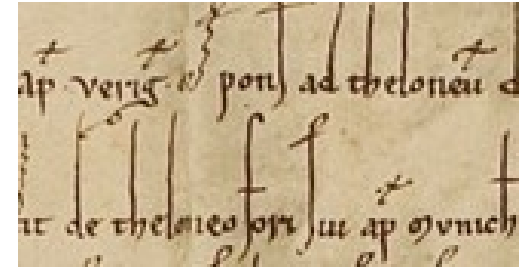 ap verig & pons ad theloneu
de theloneo fori sui ap Munich